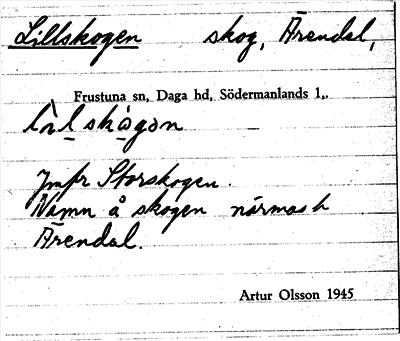 Lillskogen skog, Ärendal,
Frustuna sn, Daga hd, Södermanlands l,.
Jmfr Storskogen.
Namn å skogen närmast
Ärendal.
Artur Olsson 1945